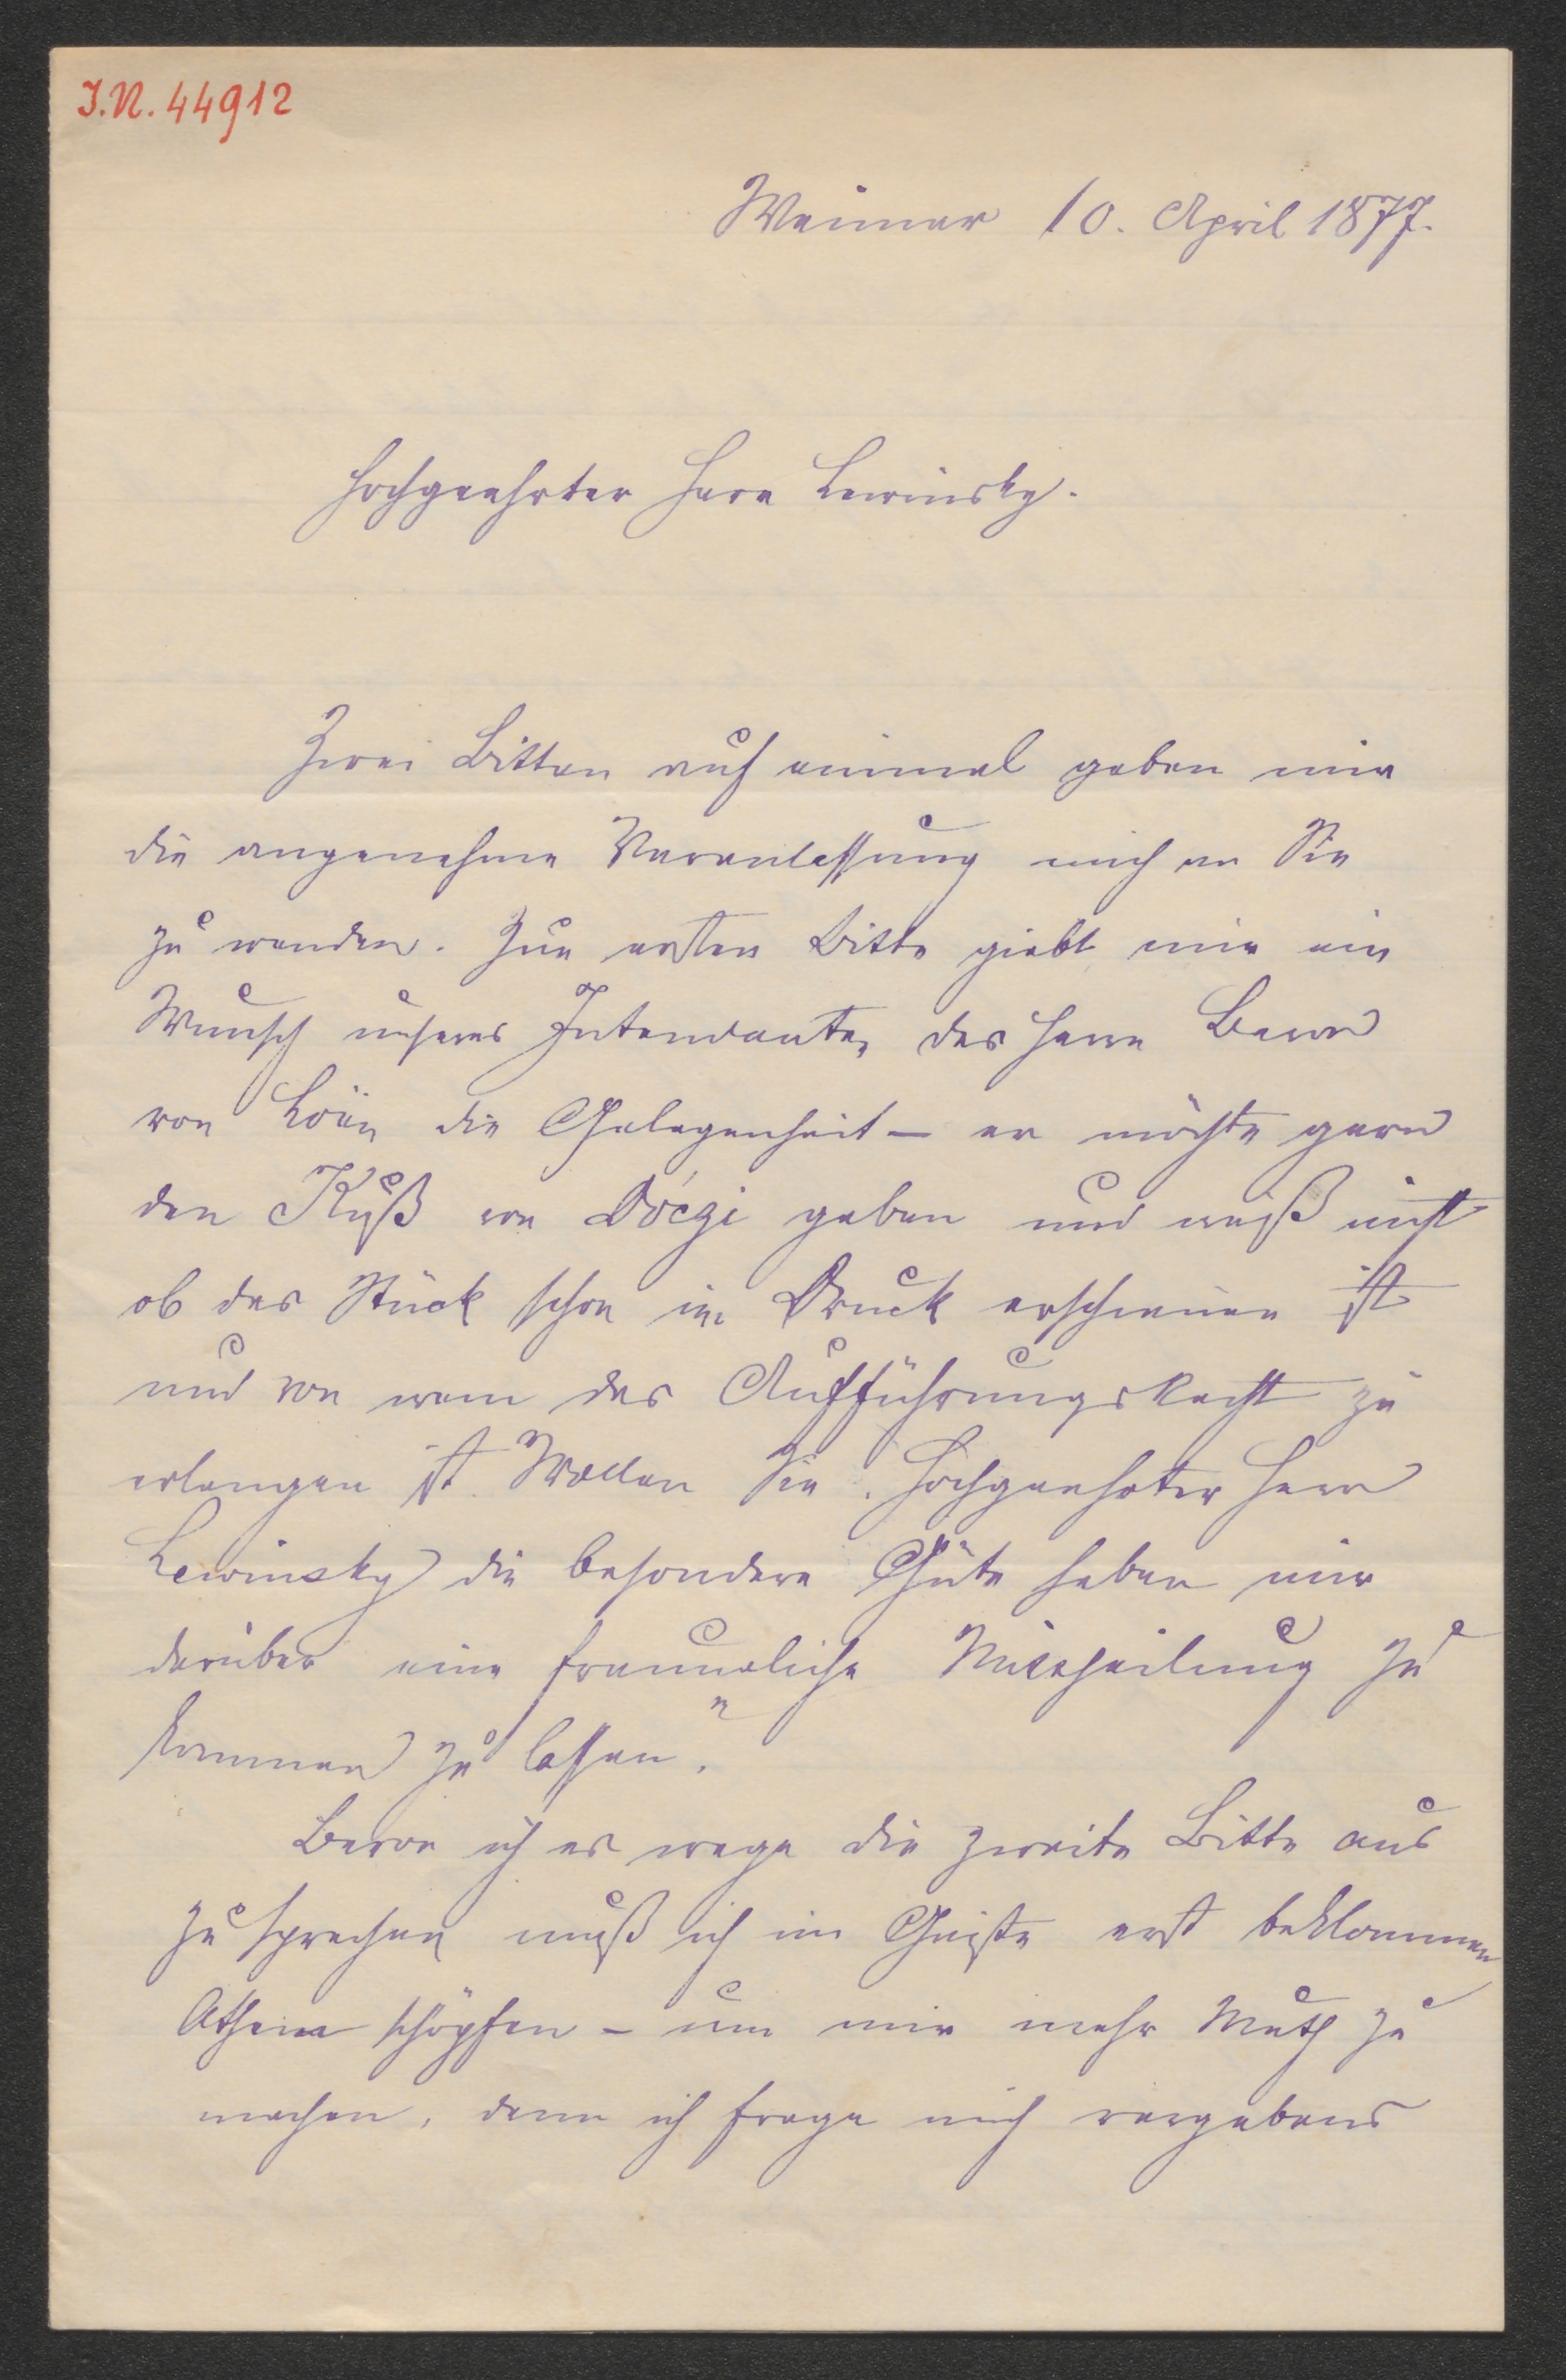 I.N. 44912
Weimar 10. April 1877.
Hochgeehrter Herr Lewinsky.
Zwei Bitten auf einmal geben mir
die angenehme Veranlassung mich an Sie
zu wenden. Zur ersten Bitte giebt mir ein
Wunsch unseres Intendanten des Herrn Baron
von Loën die Gelegenheit – er möchte gern
den Kuß von Dóczi geben und weiß nicht
ob das Stück schon im Druck erschienen ist
und von wem das Aufführungsrecht zu
erlangen ist. Wollen Sie, hochgeehrter Herr
Lewinsky die besondere Güte haben mir
darüber eine freundliche Mittheilung zu
kommen zu lassen.
Bevor ich es wage die zweite Bitte aus
zu sprechen muß ich im Geiste erst beklommen
Athem schöpfen – um mir mehr Muth zu
machen, denn ich frage mich vergebens